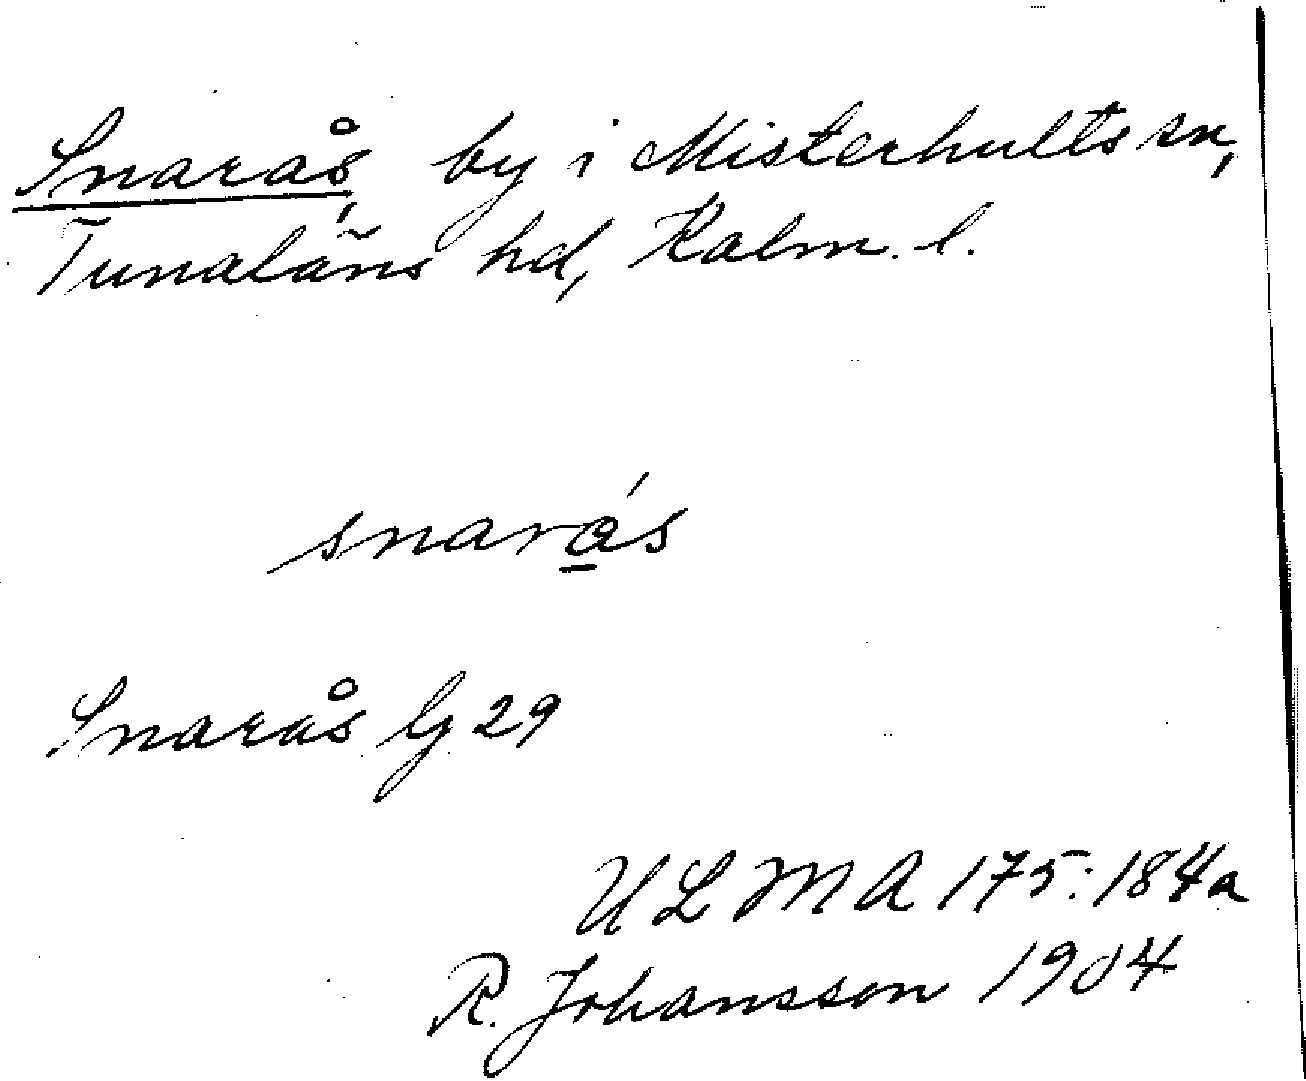 Snarås, by i Misterhults sn,
Tunaläns hd, Kalm. l.
snarás
Snarås Gj 29
ULMA 175:184a
R. Johansson 1904